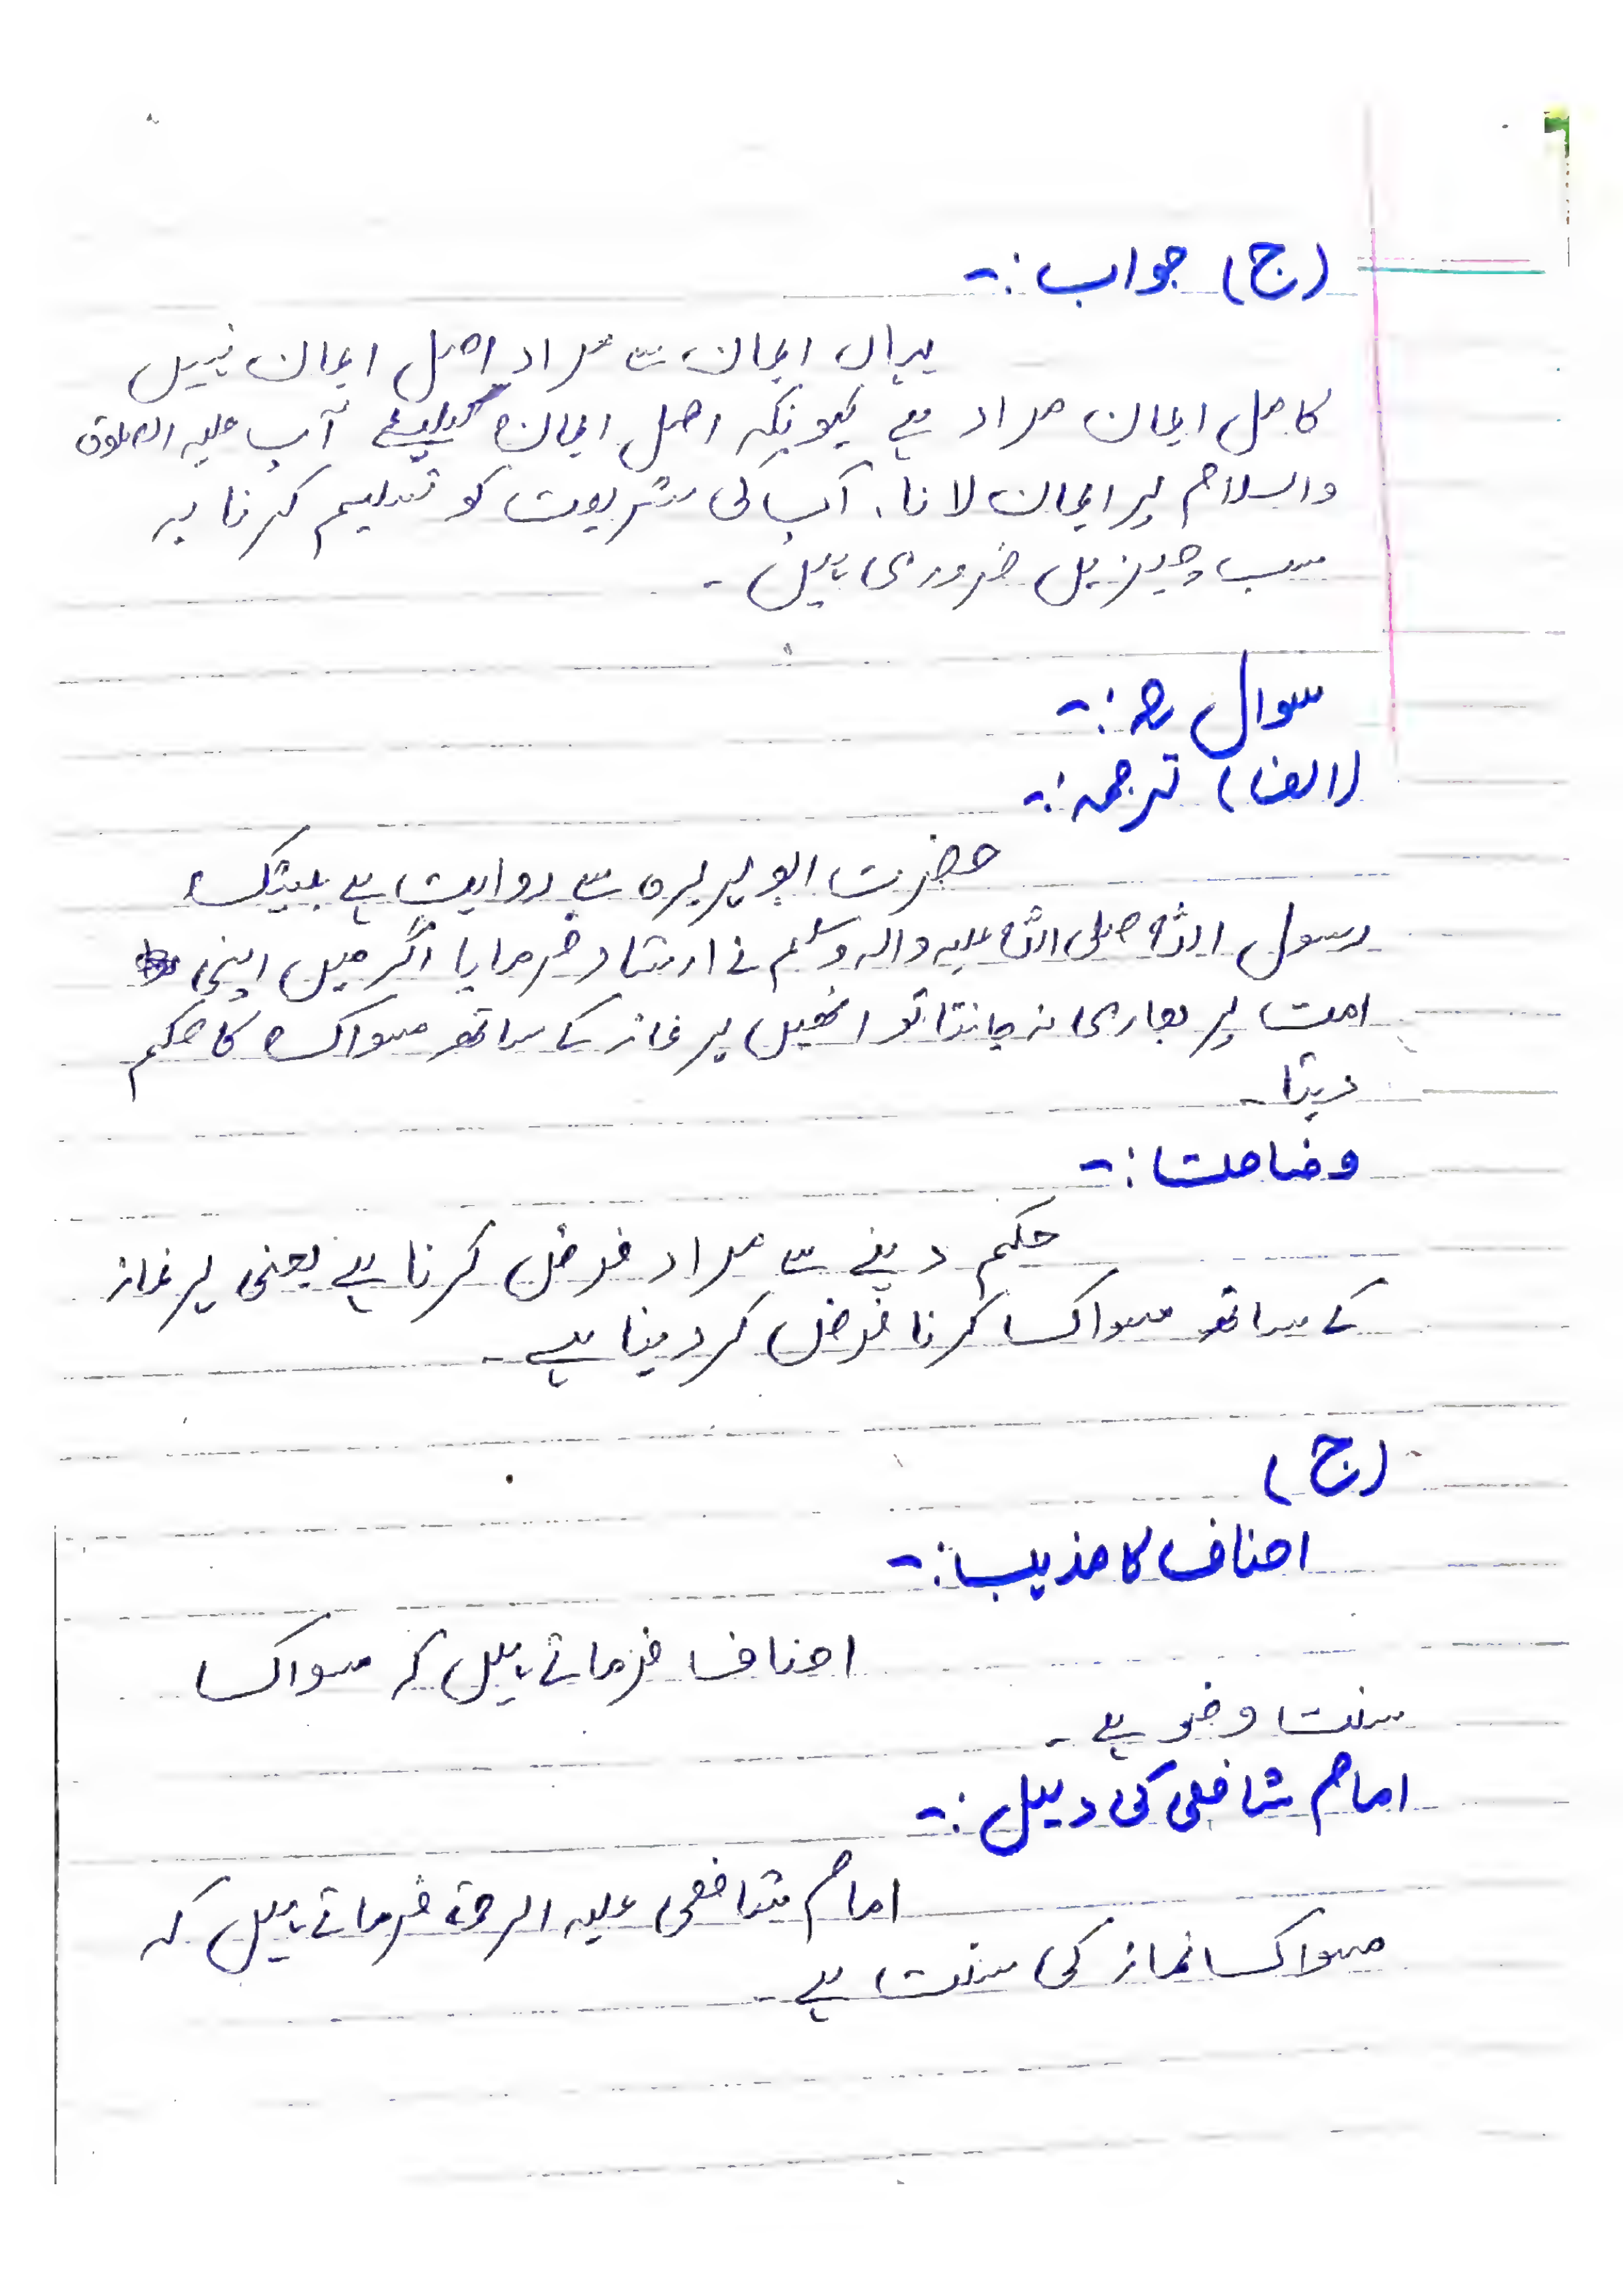 (ج) جواب :-
یہاں ایمان سے مراد اصل ایمان نہیں
کامل ایمان مراد ہے کیونکہ اصل ایمان کیلئے آپ علیہ الصلوۃ
والسلام پر ایمان لانا، آپ کی شریعت کو تسلیم کرنا یہ
سب چیزیں ضروری ہیں۔
سوال :-
(الف) ترجمہ :-
حضرت ابو ہریرہ سے روایت ہے بیشک
رسول اللہ صلی اللہ علیہ والہ وسلم نے ارشاد فرمایا اگر میں اپنی
امت پر بھاری نہ جانتا تو انھیں ہر نماز کے ساتھ مسواک کا حکم
دیتا۔
وضاحت :-
حکم دینے سے مراد فرض کرنا ہے یعنی ہر نماز
کے ساتھ مسواک کرنا فرض کر دینا ہے۔
(ج)
احناف کا مذہب :-
احناف فرماتے ہیں کہ مسواک
سنت وضو ہے۔
امام شافعی کی دلیل :-
امام شافعی علیہ الرحمۃ فرماتے ہیں کہ
مسواک نماز کی سنت ہے۔